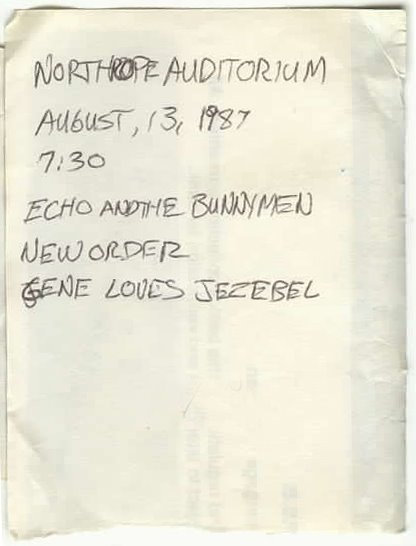 NORTHROPE AUDITORIUM
AUGUST, 13, 1987
7:30
ECHO AND THE BUNNYMEN
NEW ORDER
GENE LOVES JEZEBEL